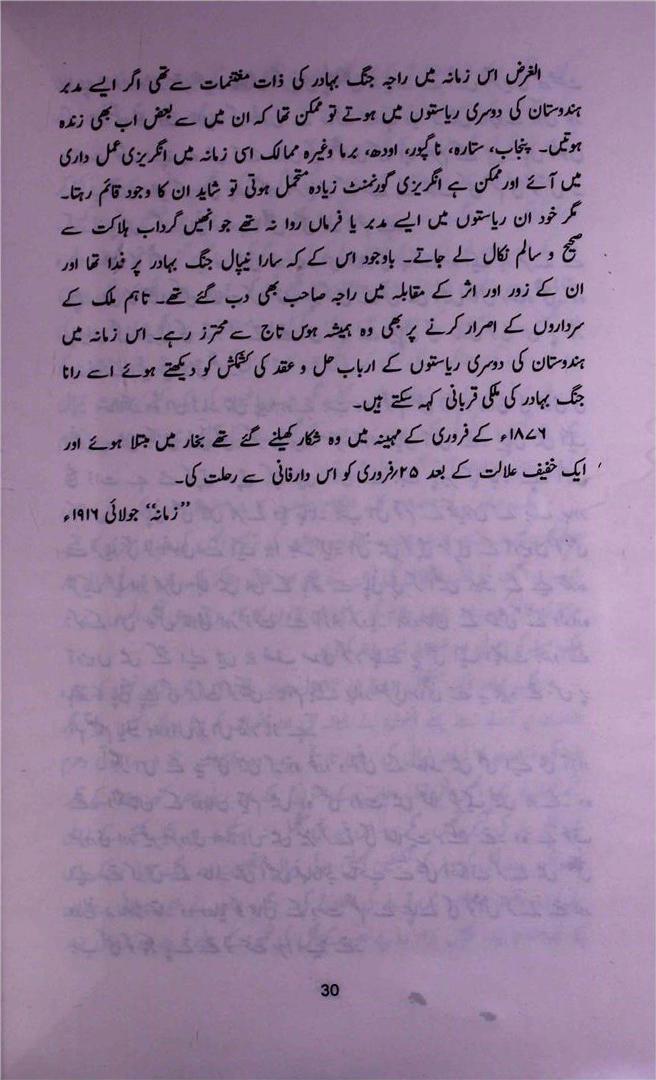 الغرض اس زمانہ میں راجہ جنگ بہادر کی ذات مغتنمات سے تھی اگر ایسے مدبر
ہندوستان کی دوسری ریاستوں میں ہوتے تو ممکن تھا کہ ان میں سے بعض اب بھی زندہ
ہوتیں۔ پنجاب، ستارہ، ناگپور، اودھ، برما وغیرہ ممالک اسی زمانہ میں انگریزی عمل داری
میں آئے اور ممکن ہے انگریزی گورنمنٹ زیادہ متحمل ہوتی تو شاید ان کا وجود قائم رہتا۔
مگر خود ان ریاستوں میں ایسے مدبر یا فرماں روا نہ تھے جو انھیں گرداب ہلاکت سے
صحیح و سالم نکال لے جاتے۔ باوجود اس کے کہ سارا نیپال جنگ بہادر پر فدا تھا اور
ان کے زور اور اثر کے مقابلہ میں راجہ صاحب بھی دب گئے تھے۔ تاہم ملک کے
سرداروں کے اصرار کرنے پر بھی وہ ہمیشہ ہوس تاج سے محترز رہے۔ اس زمانہ میں
ہندوستان کی دوسری ریاستوں کے ارباب حل و عقد کی کشمکش کو دیکھتے ہوئے اسے رانا
جنگ بہادر کی ملکی قربانی کہہ سکتے ہیں۔
۱۸۷۶ء کے فروری کے مہینہ میں وہ شکار کھیلنے گئے تھے بخار میں مبتلا ہوئے اور
ایک خفیف علالت کے بعد ۲۵؍فروری کو اس دارفانی سے رحلت کی۔
”زمانہ“ جولائی ۱۹۱۶ء
30